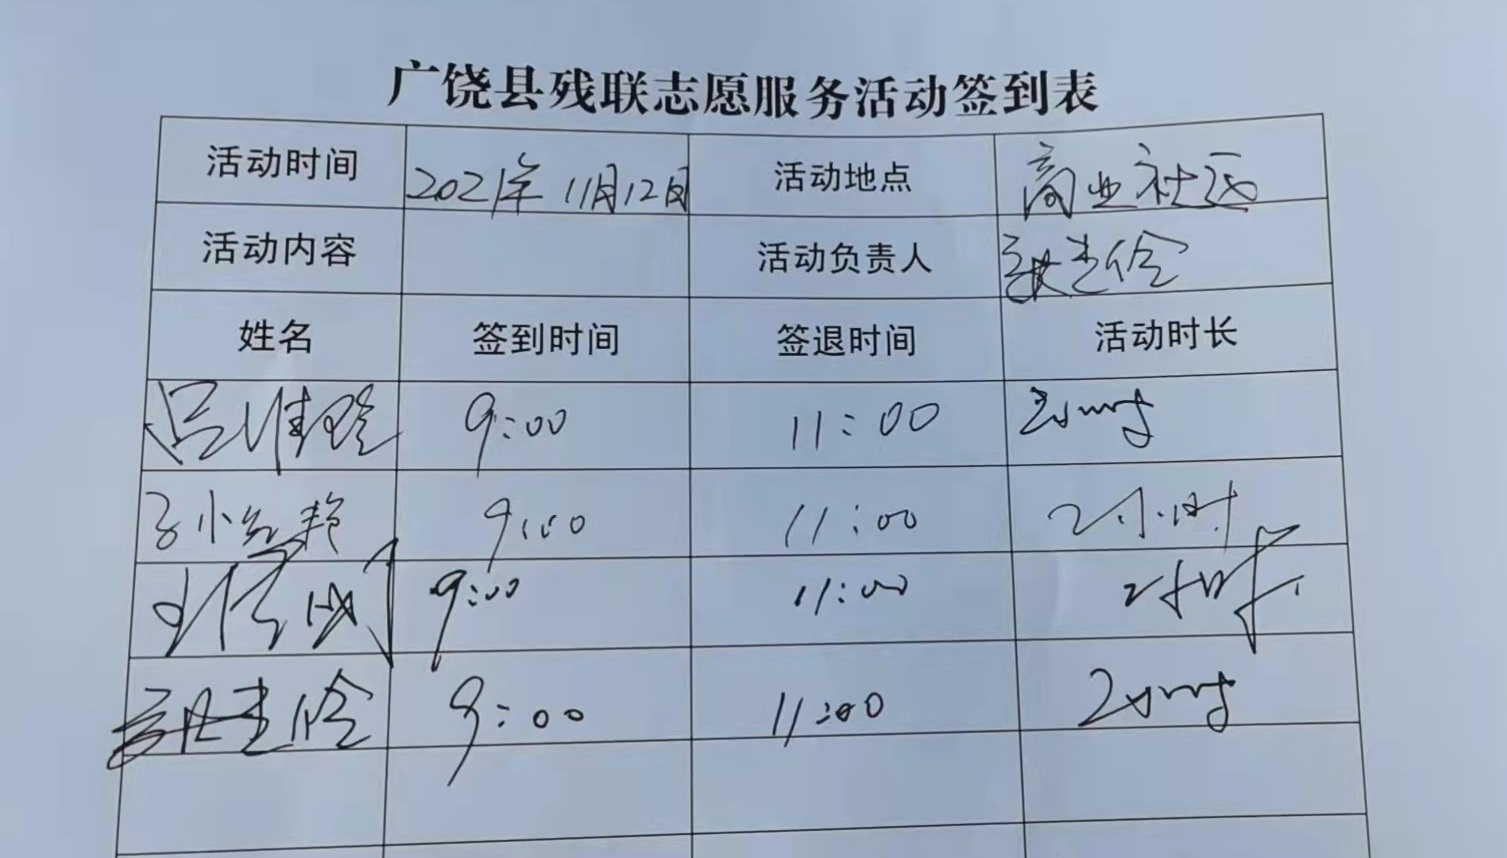 广饶县残联志愿服务活动签到表
活动时间 2021年11月12日 活动地点 商业社区
活动内容 活动负责人
姓名 签到时间 签退时间 活动时长
吕维 9:00 11:00 2小时
小红艳 9:00 11:00 2小时
9:00 11:00 2小时
9:00 11:00 2小时